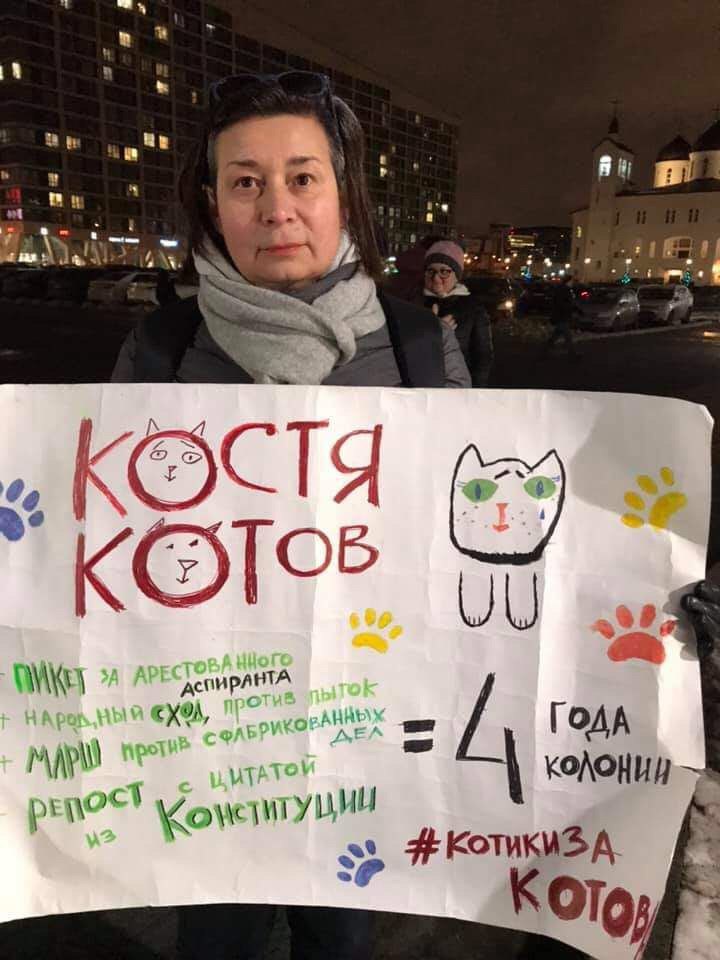 КОСТЯ
КОТОВ
+ ПИКЕТ ЗА АРЕСТОВАННОГО
АСПИРАНТА
+ НАРОДНЫЙ СХОД ПРОТИВ ПЫТОК
+ МАРШ ПРОТИВ СФАБРИКОВАННЫХ
ДЕЛ
РЕПОСТ С ЦИТАТОЙ
ИЗ КОНСТИТУЦИИ
= 4 ГОДА
КОЛОНИИ
#КОТИКИЗА
КОТОВ